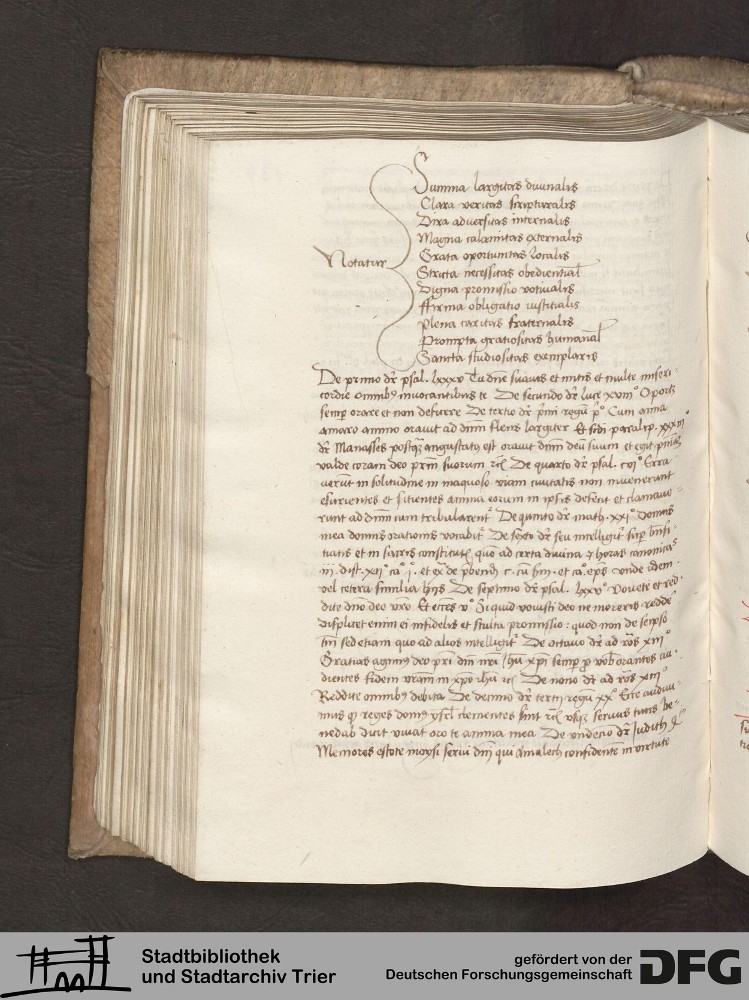 Summa largitas diuinalis
Clara veritas scripturalis
Dira aduersitas internalis
Magna calamitas externalis
Notatur
Grata oportunitas localis
Stricta necessitas obediential
Digna promissio votiualis
ffirma obligatio iusticialis
Plena caritas fraternalis
Prompta gratiositas humanal
Sancta studiositas exemplaris
De primo dr psal. lxxxv Tu dne suauis et mitis et multe miseri-
cordie omnibꝫ inuocantibus te De secundo dr luce xviii° Oportꝫ
semper orare et non deficere De tertio dr primi regu p° Cum anna
amaro animo orauit ad dnm flens largiter Et scdi paralip. xxxiii°
dr Manasses postqꝫ angustatus est orauit dnm deu suum et egit pniam
valde coram deo prm suorum rcl De quarto dr psal. cvi° Erra-
uerut in solitudine in inaquoso viam ciuitatis non inuenerunt
esurientes et sitientes anima eorum in ipsis defecit et clamaue-
runt ad dnm cum tribularent De quinto dr math. xxi° Domus
mea domus orationis vocabit De sexto dr seu intelligit sup bnfi-
ciatis et in sacris constitut quo ad certa diuina et horas canonicas
De septimo dr psal. lxxv° Vouete et red-
dite dno deo vro Et ecces v° Si quid vouisti deo ne moreris reddere
displicet enim ei infidelis et stulta promissio : quod non de seipso
tm sed etiam quo ad alios intelligit De octauo dr ad
Gratias agimꝫ deo pri dni nri ihu xpi semp pro vob orantes au-
dientes fidem vram in xpo ihu rcl De nono dr ad ros xiii°
Reddite omnibꝫ debita De decimo dr tertii regu xx° Ecce audiui-
mus qꝫ reges domꝫ ysrl clementes sunt rcl vsqꝫ seruus tuus be-
nedab dicit viuat oro te anima mea De vndecimo dr Judith
Memores estote moysi serui dni qui Amalech confidente in virtute
Stadtbibliothek
und Stadtarchiv Trier
gefördert von der
Deutschen Forschungsgemeinschaft
DFG